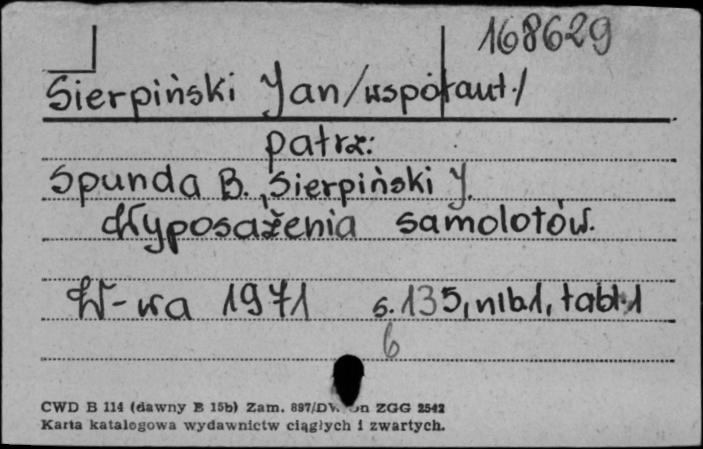 168629
Sierpiński Jan /współaut./
patrz:
Spunda B., Sierpiński J.
Wyposażenia samolotów.
W-wa 1971 s. 135, nlb.1, tabl.1
6
CWD B 114 (dawny B 15b) Zam. 897/DW. ZGG 2542
Karta katalogowa wydawnictw ciągłych i zwartych.